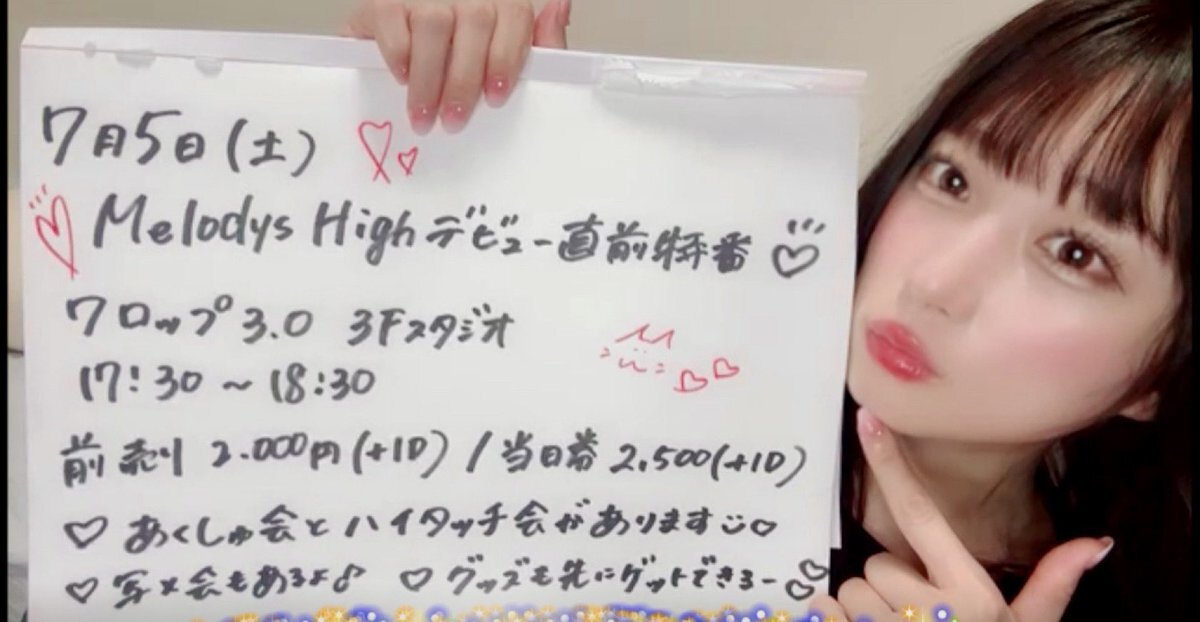 7月5日(土)
Melodys High デビュー直前特番
フロップ3.0 3Fスタジオ
17:30~18:30
前売り 2.000円(+1D) / 当日券 2,500(+1D)
♡ あくしゅ会とハイタッチ会があります♡
♡ 写メ会もあるよ♪ ♡ グッズも先にゲットできるー